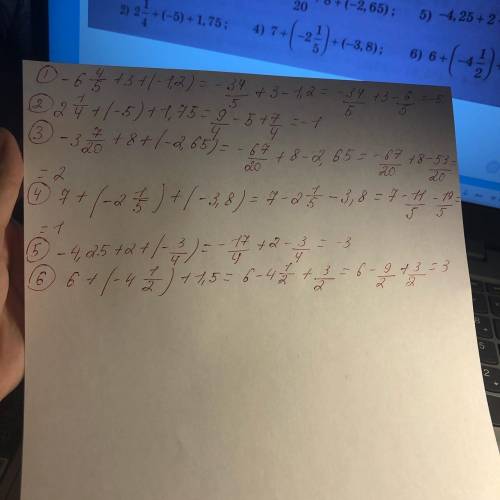 20 + 8 + (−2,65); 5) −4,25 + 2
2) 2 1/4 + (−5) + 1,75; 4) 7 + (−2 1/5) + (−3,8); 6) 6 + (−4 1/2)
① −6 4/5 + 3 + (−1,2) = −34/5 + 3 − 1,2 = −34/5 + 3 − 6/5 = −5
② 2 1/4 + (−5) + 1,75 = 9/4 − 5 + 7/4 = −1
③ −3 7/20 + 8 + (−2,65) = −67/20 + 8 − 2,65 = −67/20 + 8 − 53/20 =
= 2
④ 7 + (−2 1/5) + (−3,8) = 7 − 2 1/5 − 3,8 = 7 − 11/5 − 19/5 =
= 1
⑤ −4,25 + 2 + (−3/4) = −17/4 + 2 − 3/4 = −3
⑥ 6 + (−4 1/2) + 1,5 = 6 − 4 1/2 + 3/2 = 6 − 9/2 + 3/2 = 3